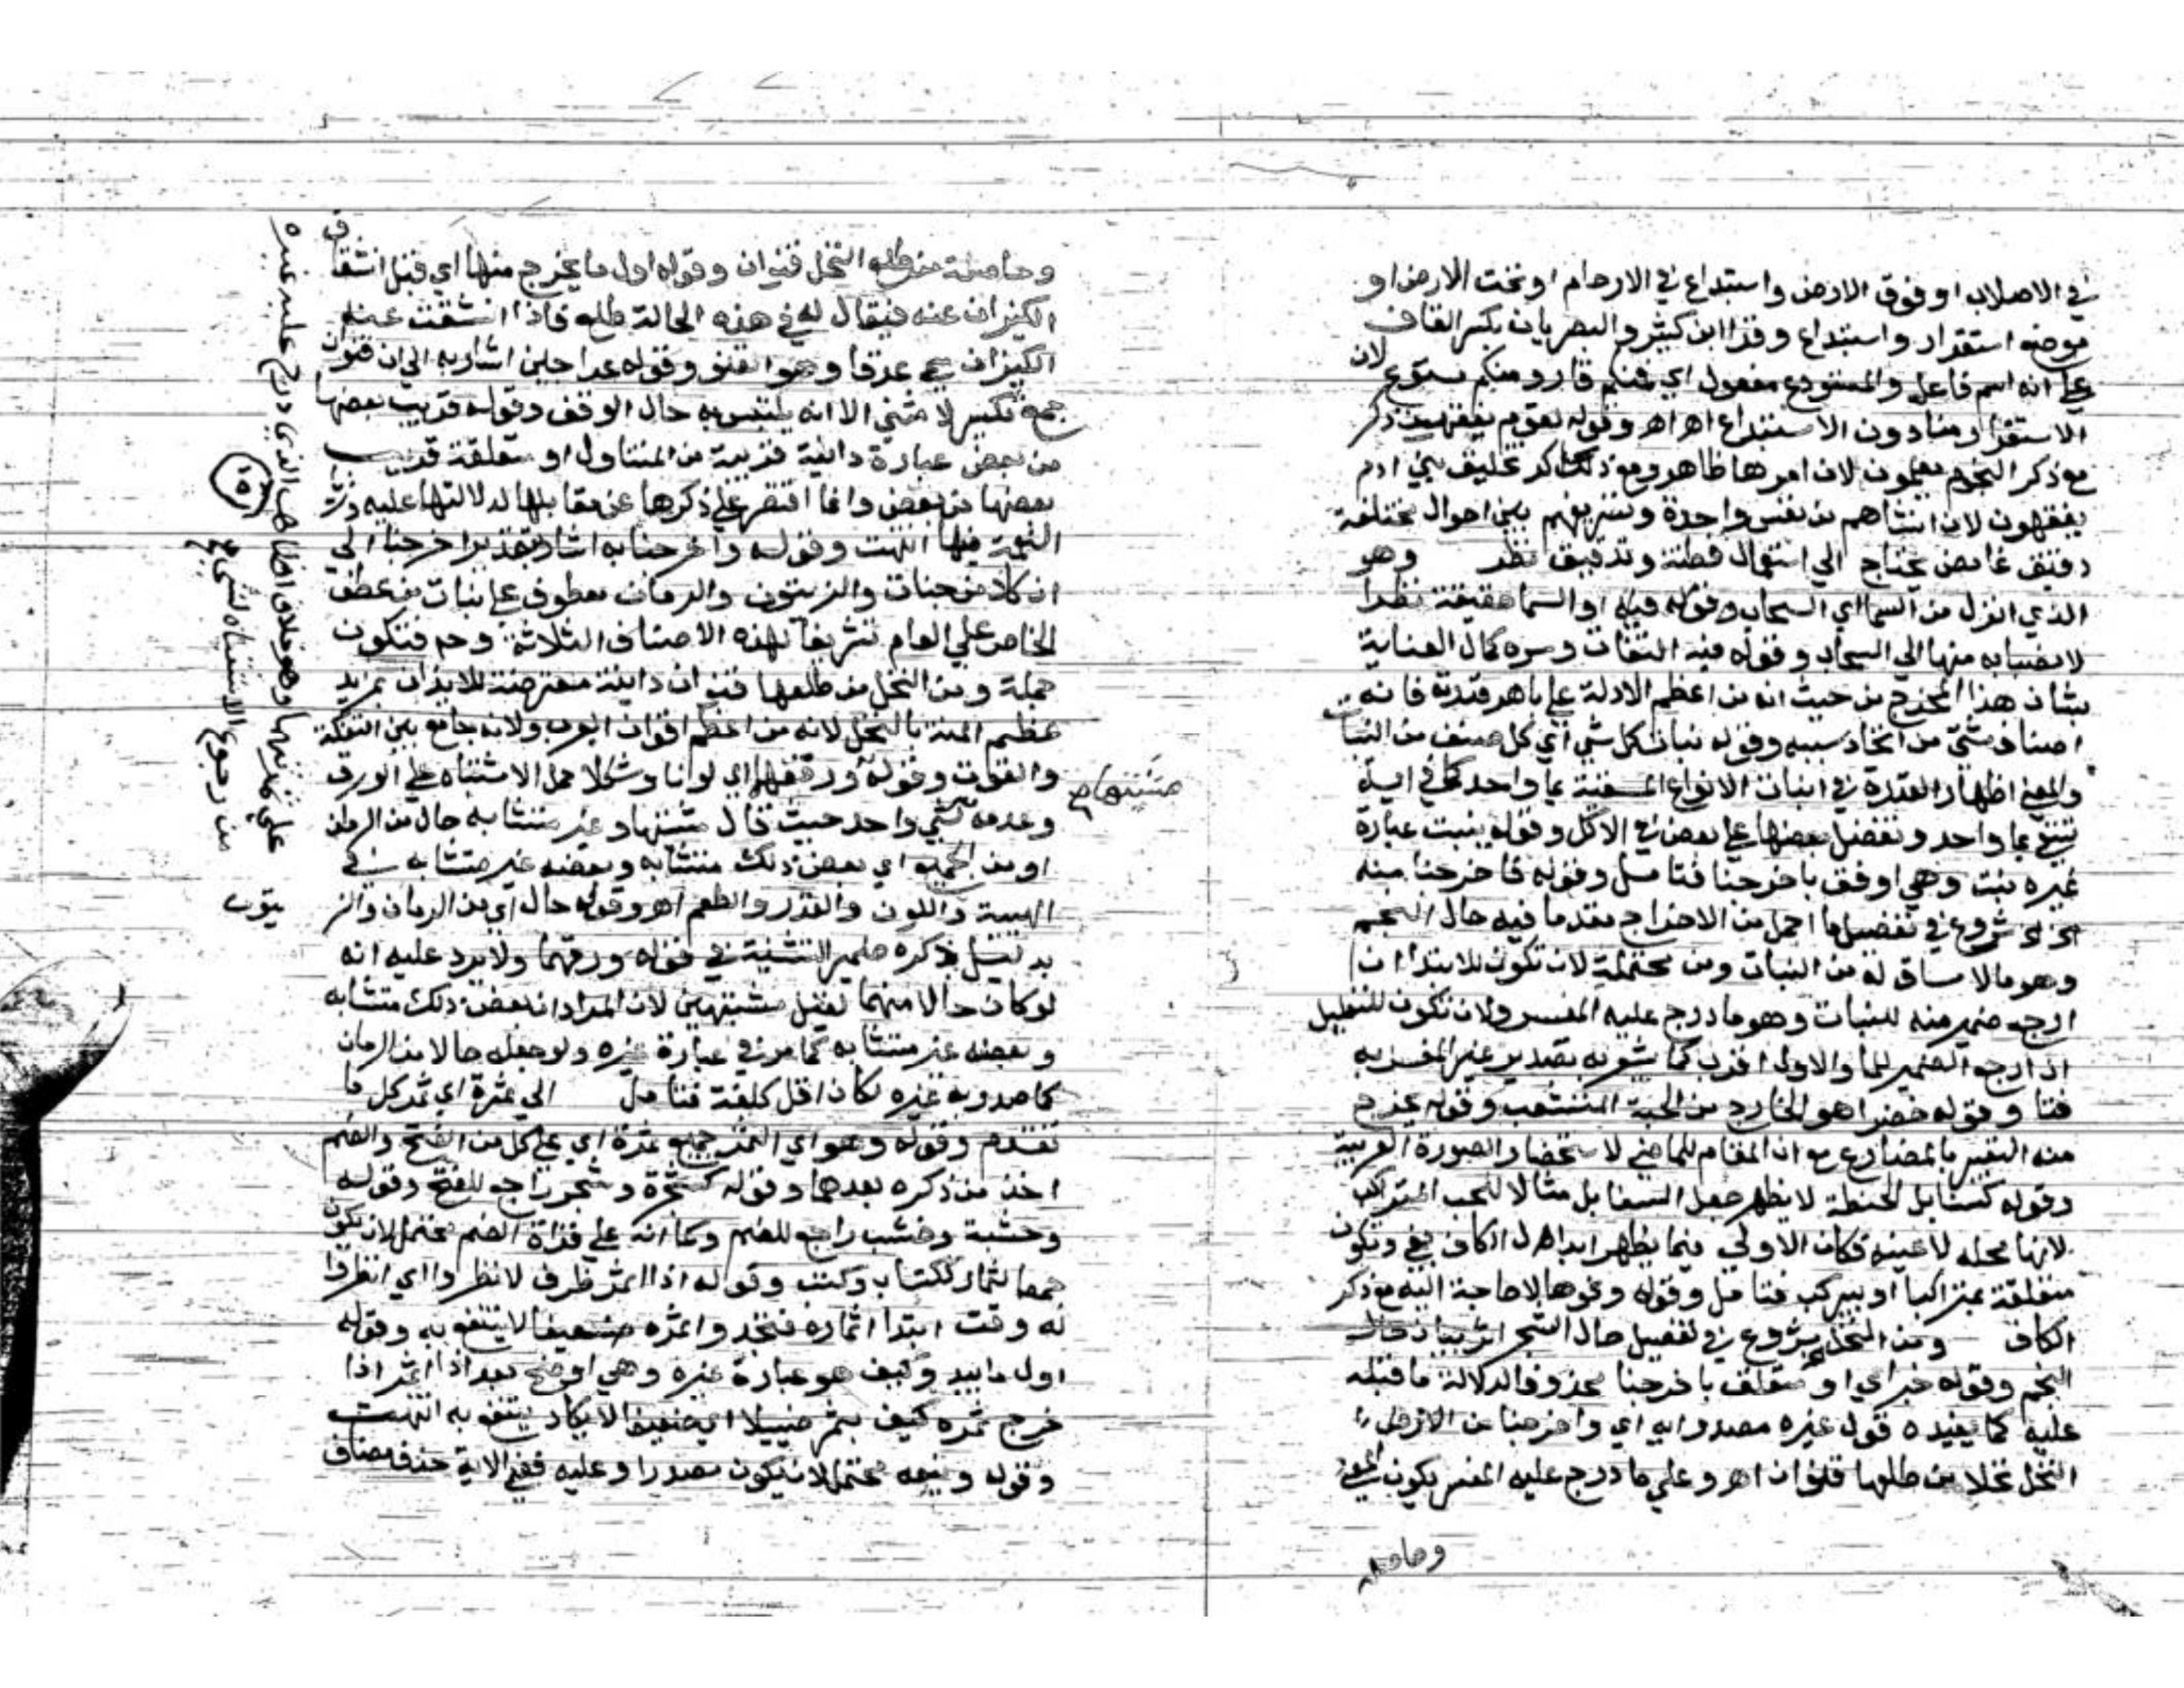 في الاصلاب او فوق الارض واستيداع في الارحام او تحت الارض او
موضع استقرار واستيداع وقرا ابن كثير والبصريان بكسر القاف
علي انه اسم فاعل والمستودع مفعول اي فمنكم قار ومنكم مستودع لان
الاستقرار منا دون الاستيداع اهـ اهـ وقوله لقوم يفقهون ذكر
مع ذكر النجوم يعلمون لان امرها ظاهر ومع ذكر تخليق بني ادم
يفقهون لان انشاهم من نفس واحدة وتصريفهم بين احوال مختلفة
دقيق غامض يحتاج الي استعمال فطنة وتدقيق نظر وهو
الذي انزل من السما اي السحاب وقوله فيه او السما حقيقة نظرا
لانصبابه منها الي السحاب وقوله فيه التفات وسره كمال العناية
بشان هذا المخرج من حيث انه من اعظم الادلة علي باهر قدرته فانه
اصناف شتي من اتحاد سببه وقوله نبات كل شي اي كل صنف من النبات
والمعني اظهار القدرة في انبات الانواع المفننة بما واحد كما في اية
تسقي بما واحد ونفضل بعضها علي بعض في الاكل وقوله ينبت عبارة
غيره نبت وهي اوفق باخرجنا فتامل وقوله فاخرجنا منه
الخ شروع في تفصيل ما اجمل من الاخراج مقدما فيه حال النجم
وهو مالا ساق له من النبات ومن محتملة لان تكون للابتدا ان
ارجع ضمير منه للنبات وهو ما درج عليه المفسر ولان تكون للتعليل
ان ارجع الضمير للما والاول اقرب كما شعر به تصدير غير المفسر به
فتا وقوله خضرا هو الخارج من الحبة المتشعب وقوله نخرج
منه التعبير بالمضارع مع ان المقام للماضي لاستحضار الصورة الغريبة
وقوله كسنابل الحنطة لا يظهر جعل السنابل مثالا للحب المتراكب
لانها محله لا عينه فكان الاولي فيما يظهر ابدال الكاف بفي ويكون
متعلقة بمتراكبا او بيركب فتامل وقوله ونحوها لا حاجة اليه مع ذكر
الكاف ومن النخل شروع في تفصيل حال الشجر اثر بيان حال
النجم وقوله خبر اي او متعلق باخرجنا محذوفا لدلالة ما قبله
عليه كما يفيده قول غيره مصدرا به اي واخرجنا من الارض
النخل نخلا من طلعها قنوان اهـ وعلي ما درج عليه المفسر يكون المعني
وحاصلة
وحاصلة من طلع النخل قنوان وقوله اول ما يخرج منها اي قبل انشقاق
الكيزان عنه فيقال له في هذه الحالة طلع فاذا انشقت عنه
الكيزان سمي عذقا وهو القنو وقوله عراجين اشار به الي ان قنوان
جمع تكسير لا مثني الا انه يلتبس به حال الوقف وقوله قريب بعضها
من بعض عبارة دانية قريبة من المتناول او متعلقة قريب
بعضها من بعض وانما اقتصر علي ذكرها عن مقابلها لدلالتها عليه وزيادة
النعمة فيها انتهت وقوله واخرجنا به اشار بتقدير اخرجنا الي
ان كلا من جنات والزيتون والرمان معطوف علي نبات من عطف
الخاص علي العام تشريفا لهذه الاصناف الثلاثة وح فتكون
جملة ومن النخل من طلعها قنوان دانية معترضة للايذان بمزيد
عظيم المنة بالنخل لانه من اعظم اقوات العرب ولانه جامع بين التفكه
والقوت وقوله ورقهما اي لونا وشكلا حمل الاشتباه علي الورق
وعدمه لشي واحد حيث قال مشتبها وغير متشابه حال من الرمان
او من الجميع اي بعض ذلك متشابه وبعضه غير متشابه في
الهيية واللون والقدر والطعم اهـ وقوله حال اي من الرمان والز
يتون
بدليل ذكره ضمير التثنية في قوله ورقهما ولا يرد عليه انه
لو كان حالا منهما لقيل مشتبهين لان المراد ان بعض ذلك متشابه
وبعضه غير متشابه كما مر في عبارة غيره ولو جعله حالا من الرمان
كما صدر به غيره لكان اقل كلفة فتامل الي ثمرة اي ثمر كل ما
تقدم وقوله وهو اي الثمر جمع ثمرة اي علي كل من الفتح والضم
اخذ من ذكره بعدهما وقوله كشجرة وشجر راجع للفتح وقوله
وخشبة وخشب راجع للضم وكما انه علي قراة الضم محتمل لان يكون
جمعا لثمار ككتاب وكتب وقوله اذا اثمر ظرف لانظروا اي انظروا
له وقت ابتدا اثماره فتجدوا ثمره ضعيفا لا ينتفع به وقوله
اول ما يبدو كيف هو عبارة غيره وهي اوضح بعد اذا اثمر اذا
خرج ثمره كيف يثمر ضييلا اي ضعيفا لا يكاد ينتفع به انتهت
وقوله وينعه محتمل لان يكون مصدرا وعليه ففي الاية حذف مضاف
مشتبها
علي ثمرتها وهو خلاف الظاهر الذي درج عليه غيره
من رجوع الاشتباه